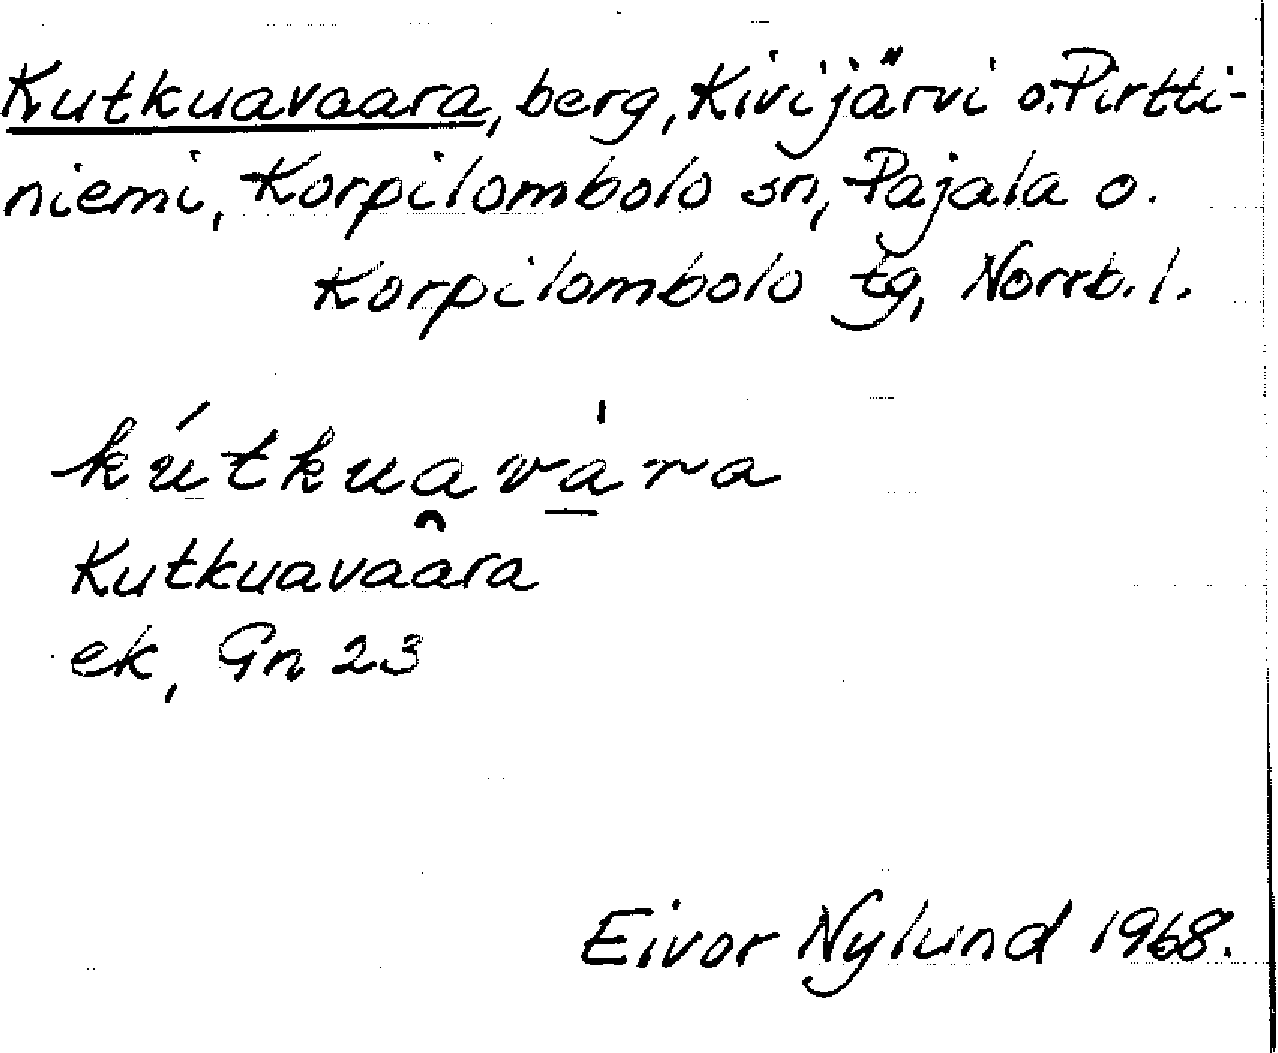 Kutkuavaara, berg, Kivijärvi o. Pirtti-
niemi, Korpilombolo sn, Pajala o.
Korpilombolo tg, Norrb. l.
kútkua̯va̱̍ra
Kutkuavaara
ek, Gn 23
Eivor Nylund 1968.